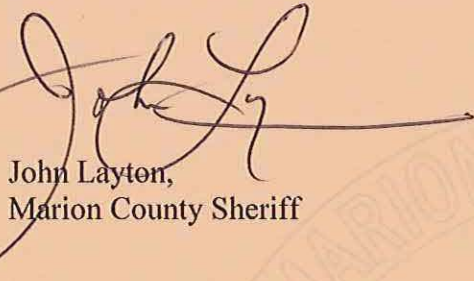 John Ly
John Layton,
Marion County Sheriff
MARION